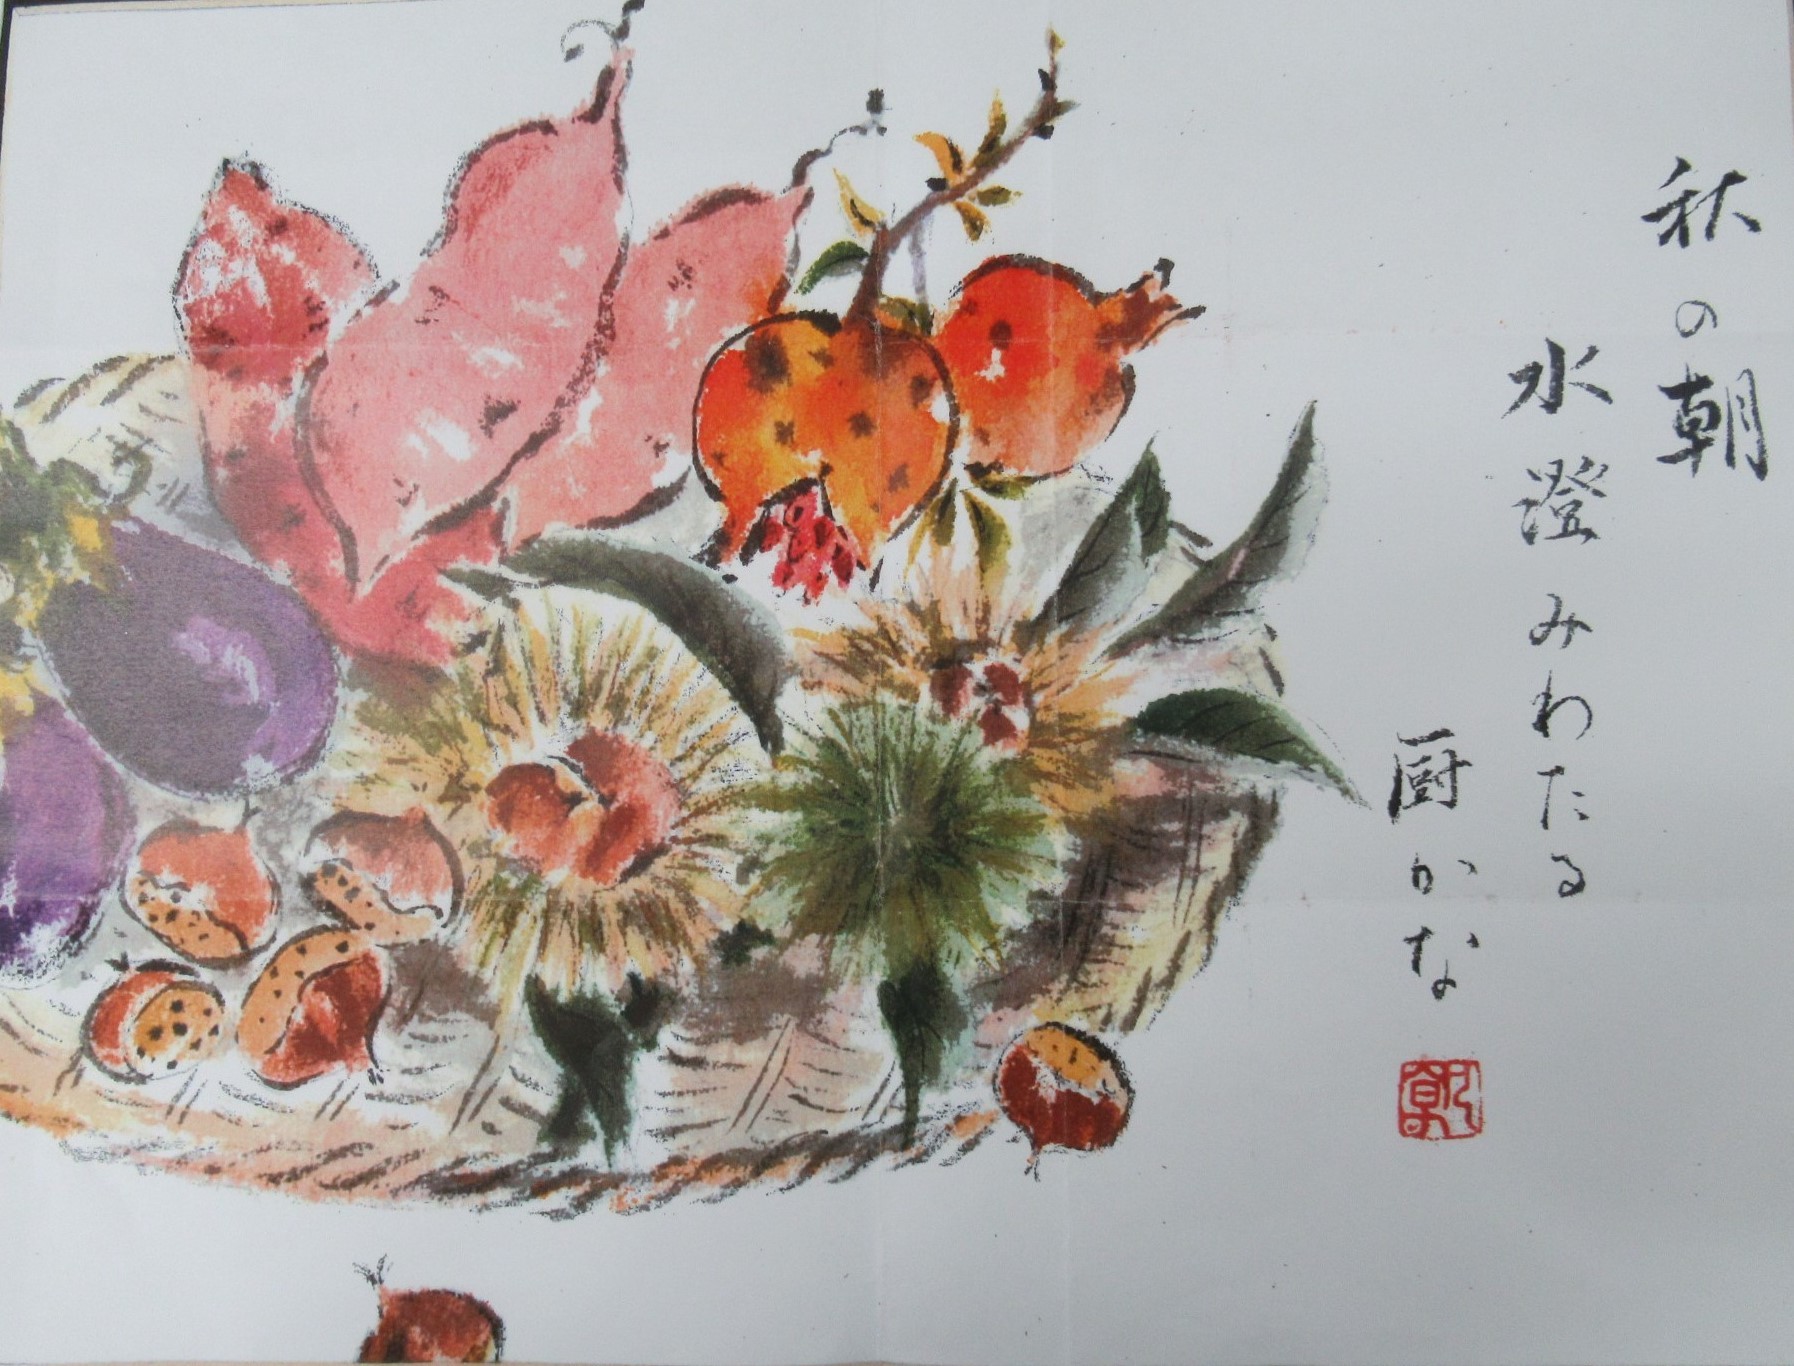 秋の朝
水澄みわたる
厨かな